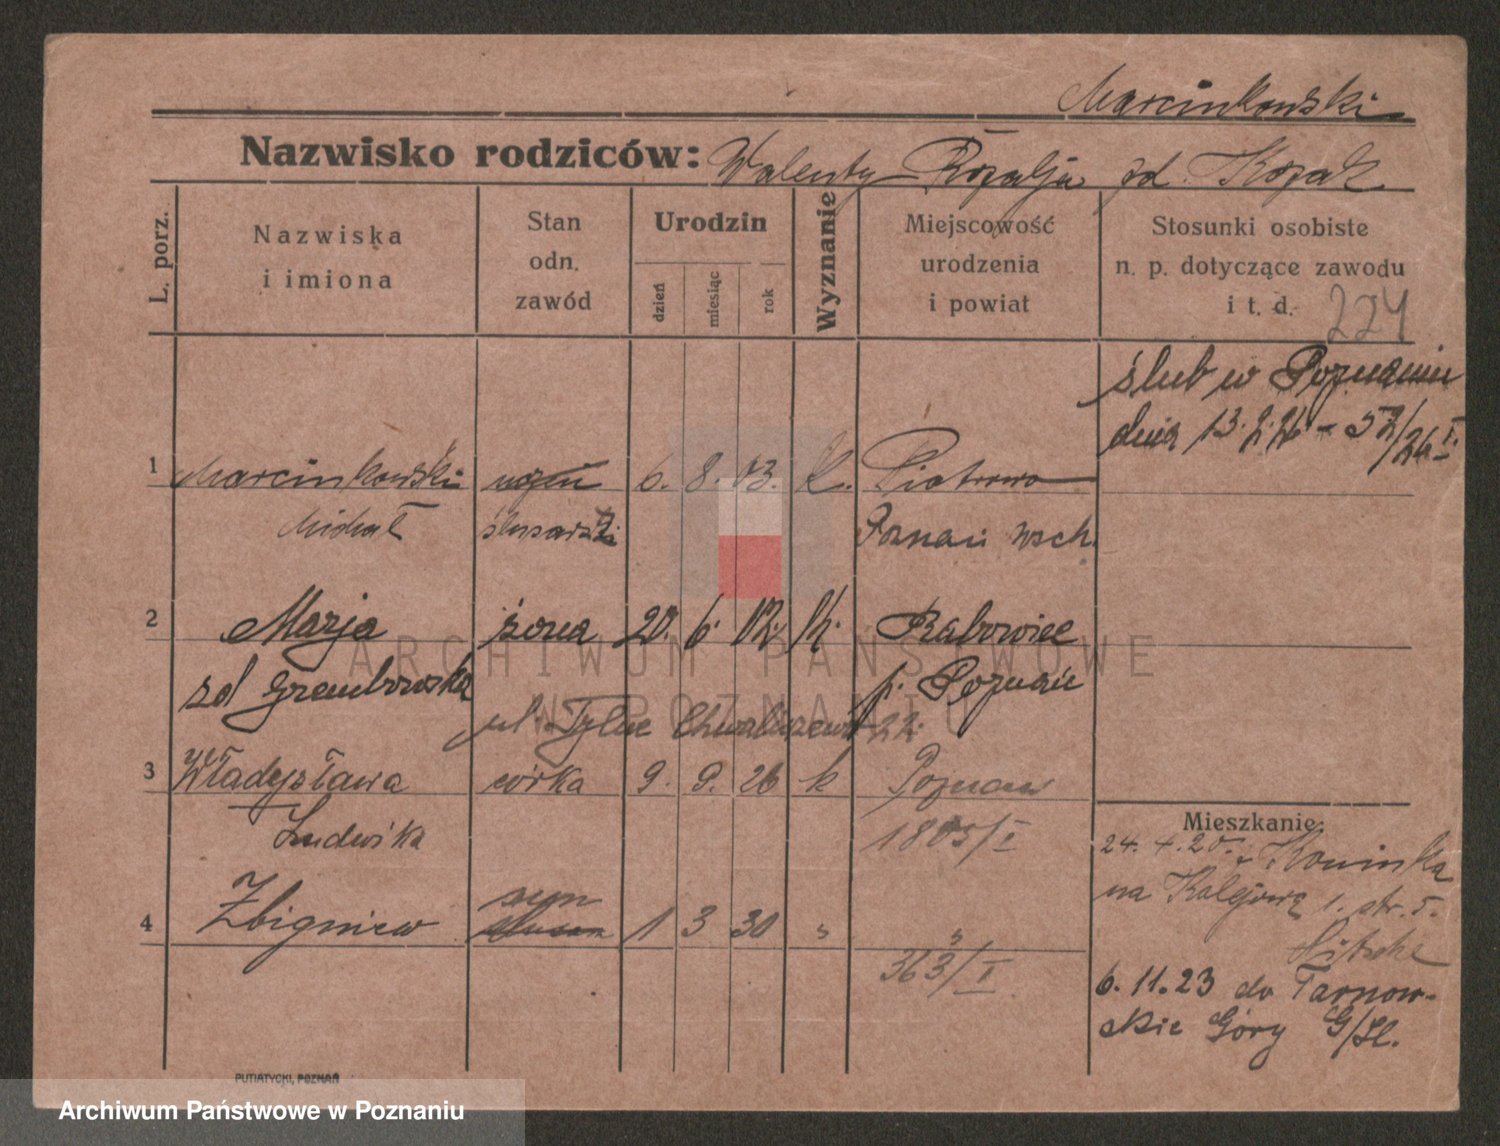 Marcinkowski
Nazwisko rodziców: Walenty Rozalja zd. Kozak
L. porz.
Nazwiska
i imiona
Stan
odn.
zawód
Urodzin
dzień
miesiąc
rok
Wyznanie
Miejscowość
urodzenia
i powiat
Stosunki osobiste
n. p. dotyczące zawodu
i t. d.
224
ślub w Poznaniu
dnia 13. 2. 26 - 52/26 I.
1 Marcinkowski uczeń 6. 8. 03. k. Piotrowo
Michał ślusarski Poznań wsch.
2 Marja żona 20. 6. 02. k. Babowiec
zd Grembowska p. Poznań
ul. Tylne Chwaliszewo 22.
3 Władysława córka 9. 9. 26 k Poznań
Ludwika 1805/I
4 Zbigniew syn 1 3 30 " "
363/I
Mieszkanie:
24. 4. 20. Kominka
na Kolejową 1. str. 5.
6. 11. 23 do Tarnow-
skie Góry G/Śl.
PUTIATYCKI, POZNAŃ
ARCHIWUM PAŃSTWOWE
W POZNANIU
Archiwum Państwowe w Poznaniu